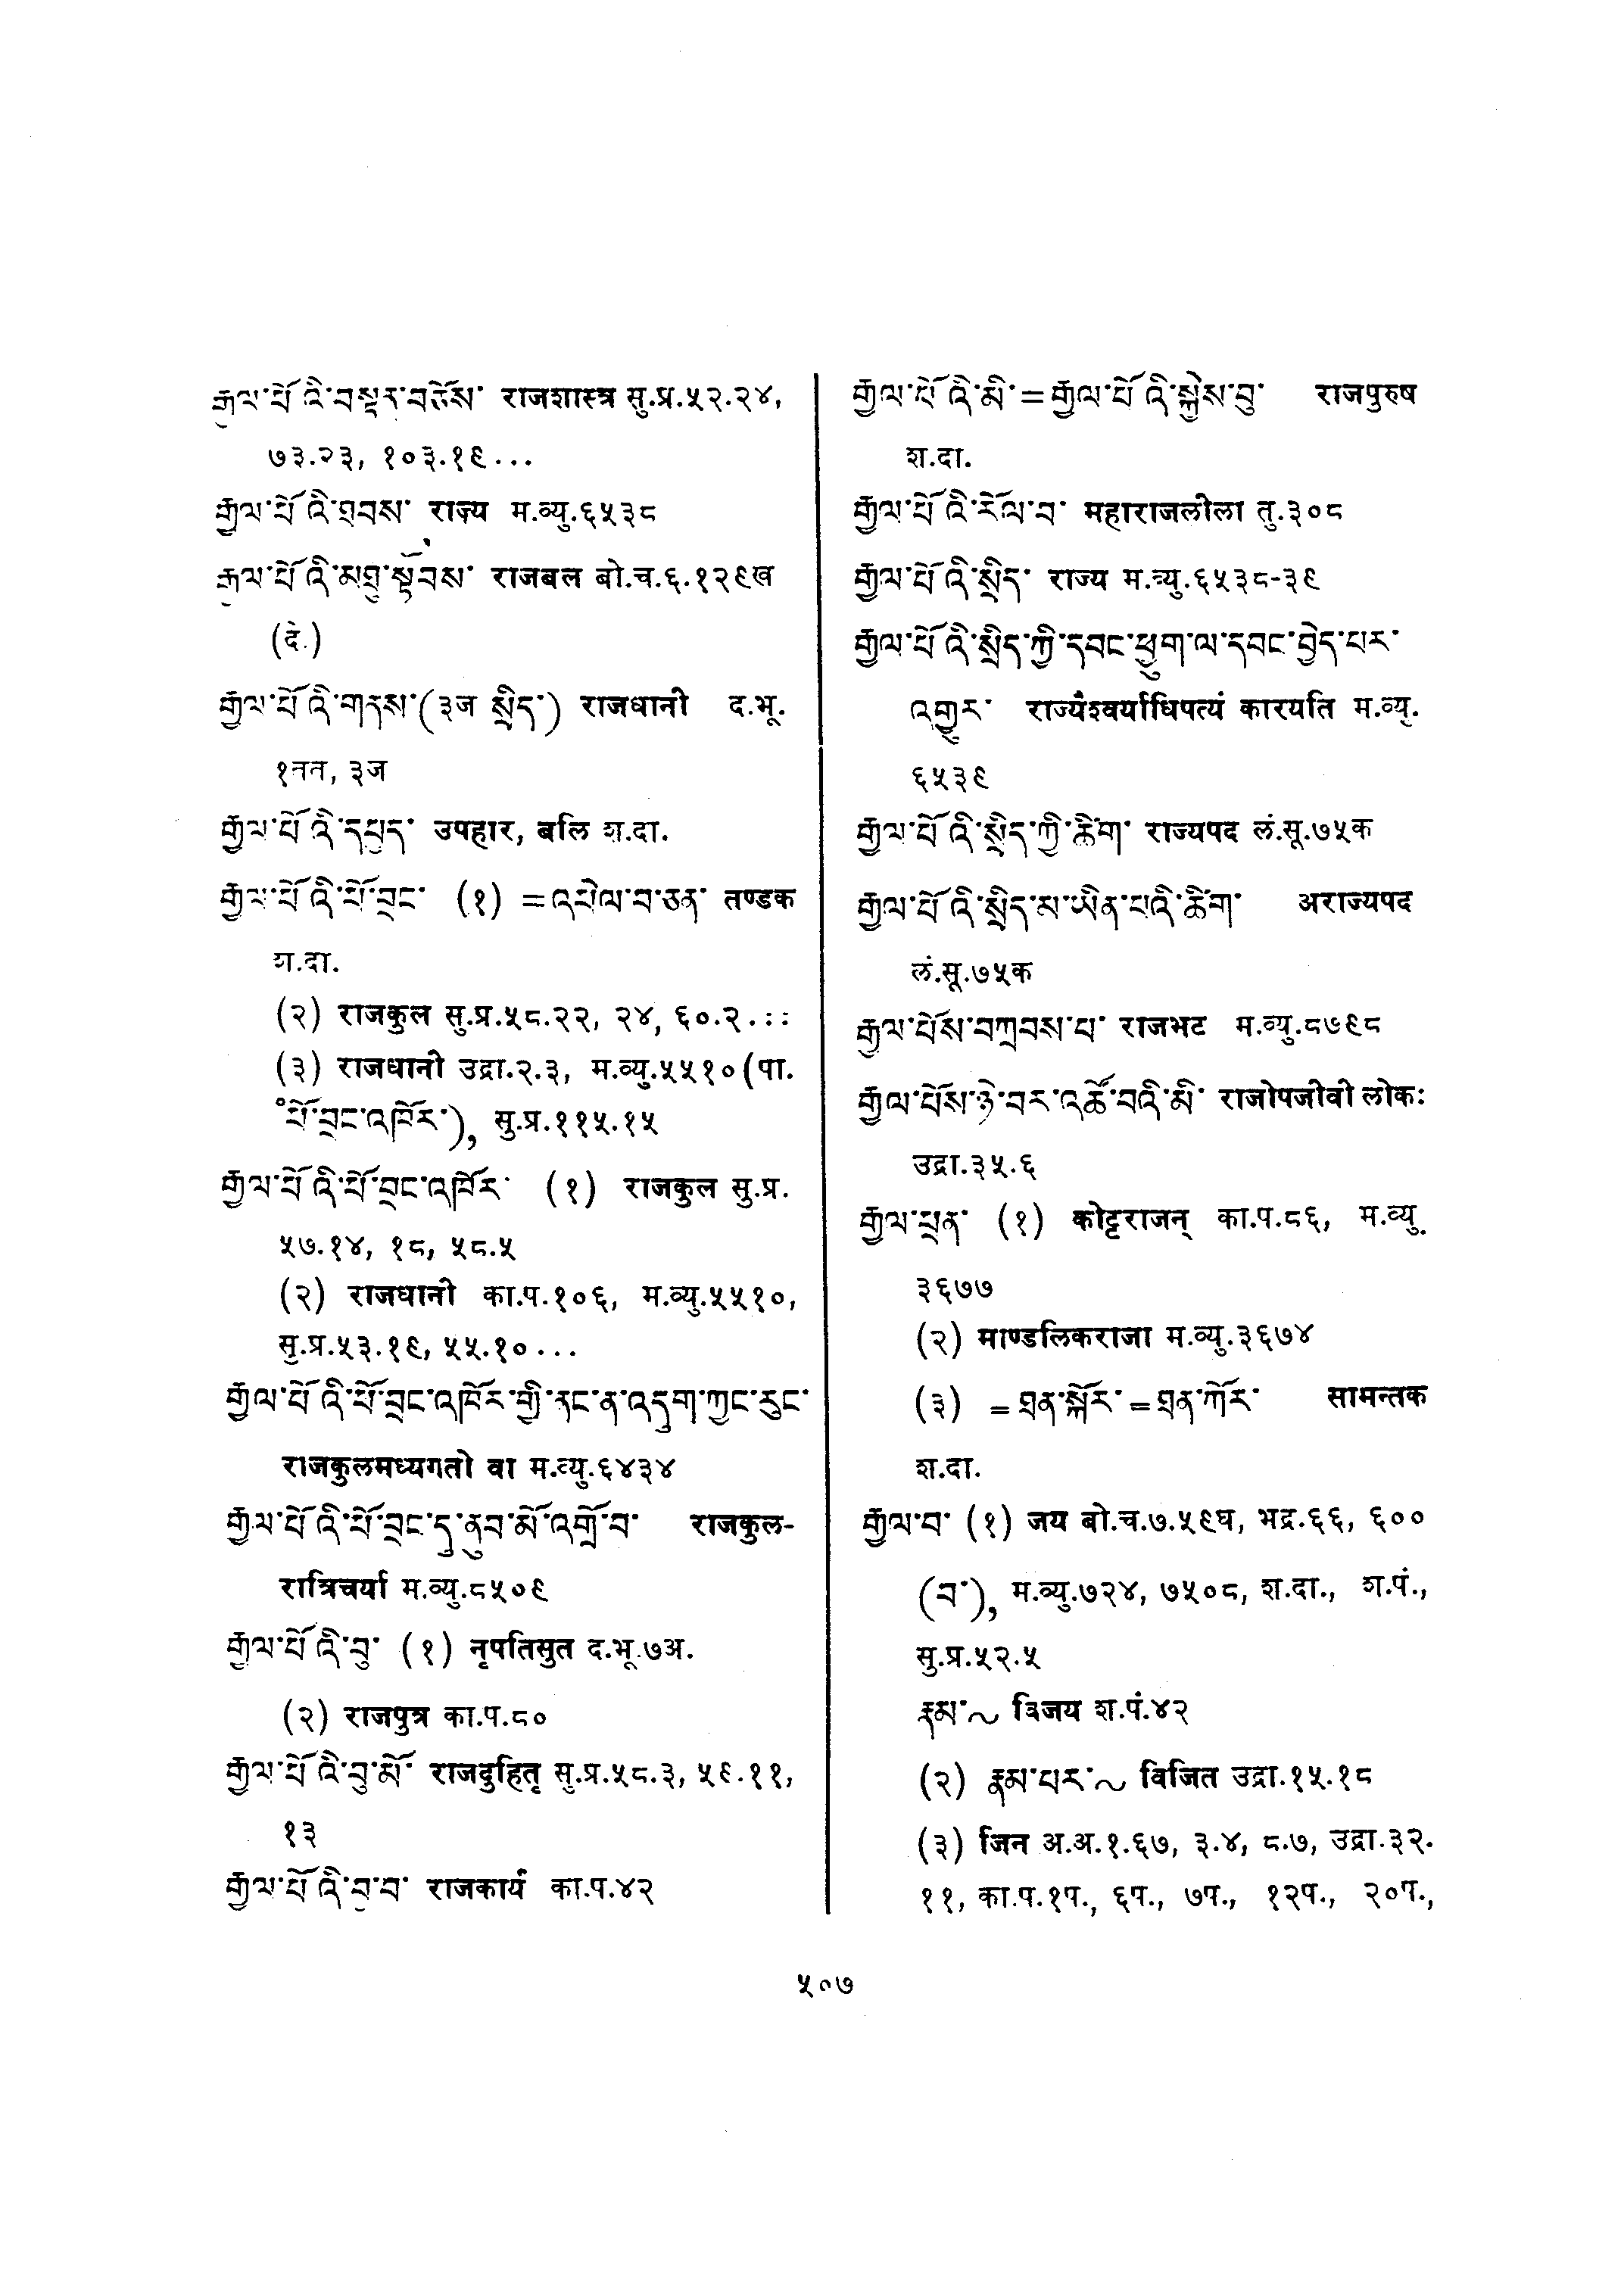 རྒྱལ་པོའི་བསྟན་བཅོས་ राजशास्त्र सु.प्र.५२.२४,
७३.२३, १०३.१९...
རྒྱལ་པོའི་ཐབས་ राज्य म.व्यु.६५३८
རྒྱལ་པོའི་མཐུ་སྟོབས་ राजबल बो.च.६.१२९ख
(दे.)
རྒྱལ་པོའི་གནས་(३ज སྲིད་) राजधानी द.भू.
१नत, ३ज
རྒྱལ་པོའི་དཔྱད་ उपहार, बलि श.दा.
རྒྱལ་པོའི་ཕོ་བྲང་ (१) =འཕེལ་བ་ཅན་ तण्डक
श.दा.
(२) राजकुल सु.प्र.५८.२२, २४, ६०.२...
(३) राजधानी उद्रा.२.३, म.व्यु.५५१०(पा.
°ཕོ་བྲང་འཁོར་), सु.प्र.११५.१५
རྒྱལ་པོའི་ཕོ་བྲང་འཁོར་ (१) राजकुल सु.प्र.
५७.१४, १८, ५८.५
(२) राजधानी का.प.१०६, म.व्यु.५५१०,
सु.प्र.५३.१९, ५५.१०...
རྒྱལ་པོའི་ཕོ་བྲང་འཁོར་གྱི་ནང་ན་འདུག་ཀྱང་རུང་
राजकुलमध्यगतो वा म.व्यु.६४३४
རྒྱལ་པོའི་ཕོ་བྲང་དུ་ནུབ་མོ་འགྲོ་བ་ राजकुल-
रात्रिचर्या म.व्यु.८५०९
རྒྱལ་པོའི་བུ་ (१) नृपतिसुत द.भू.७अ.
(२) राजपुत्र का.प.८०
རྒྱལ་པོའི་བུ་མོ་ राजदुहितृ सु.प्र.५८.३, ५९.११,
१३
རྒྱལ་པོའི་བྱ་བ་ राजकार्य का.प.४२
རྒྱལ་པོའི་མི་=རྒྱལ་པོའི་སྐྱེས་བུ་ राजपुरुष
श.दा.
རྒྱལ་པོའི་རོལ་བ་ महाराजलीला तु.३०८
རྒྱལ་པོའི་སྲིད་ राज्य म.व्यु.६५३८-३९
རྒྱལ་པོའི་སྲིད་ཀྱི་དབང་ཕྱུག་ལ་དབང་བྱེད་པར་
འགྱུར་ राज्यैश्वर्याधिपत्यं कारयति म.व्यु.
६५३९
རྒྱལ་པོའི་སྲིད་ཀྱི་ཚིག་ राज्यपद लं.सू.७५क
རྒྱལ་པོའི་སྲིད་མ་ཡིན་པའི་ཚིག་ अराज्यपद
लं.सू.७५क
རྒྱལ་པོས་བཀྲབས་པ་ राजभट म.व्यु.८७९८
རྒྱལ་པོས་ཉེ་བར་འཚོ་བའི་མི་ राजोपजीवी लोकः
उद्रा.३५.६
རྒྱལ་ཕྲན་ (१) कोट्टराजन् का.प.८६, म.व्यु.
३६७७
(२) माण्डलिकराजा म.व्यु.३६७४
(३) =ཐན་སྐོར་=ཐན་ཀོར་ सामन्तक
श.दा.
རྒྱལ་བ་ (१) जय बो.च.७.५९घ, भद्र.६६, ६००
(བ་), म.व्यु.७२४, ७५०८, श.दा., श.पं.,
सु.प्र.५२.५
རྣམ་~ विजय श.पं.४२
(२) རྣམ་པར་~ विजित उद्रा.१५.१८
(३) जिन अ.अ.१.६७, ३.४, ८.७, उद्रा.३२.
११, का.प.१प., ६प., ७प., १२प., २०प.,
५०७